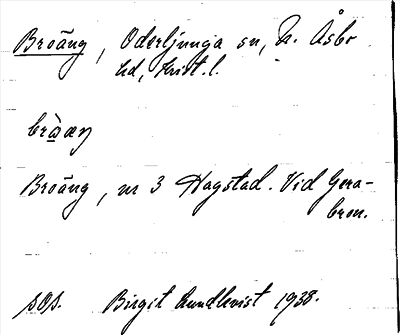 Broäng, Oderljunga sn, N. Åsbo
hd, Krist. l.
bràæŋ
Broäng, nr 3 Hagstad. Vid Gera-
bron.
sOs. Birgit Lundkvist 1938.